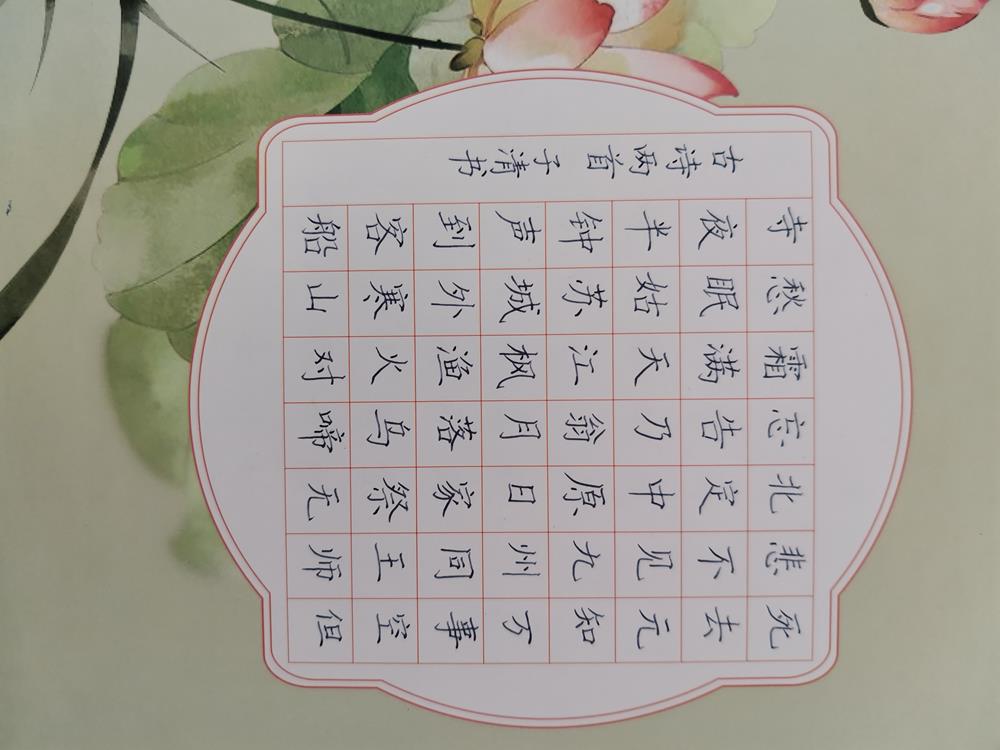 死去元知万事空但
悲不见九州同王师
北定中原日家祭无
忘告乃翁月落乌啼
霜满天江枫渔火对
愁眠姑苏城外寒山
寺夜半钟声到客船
古诗两首 子清书